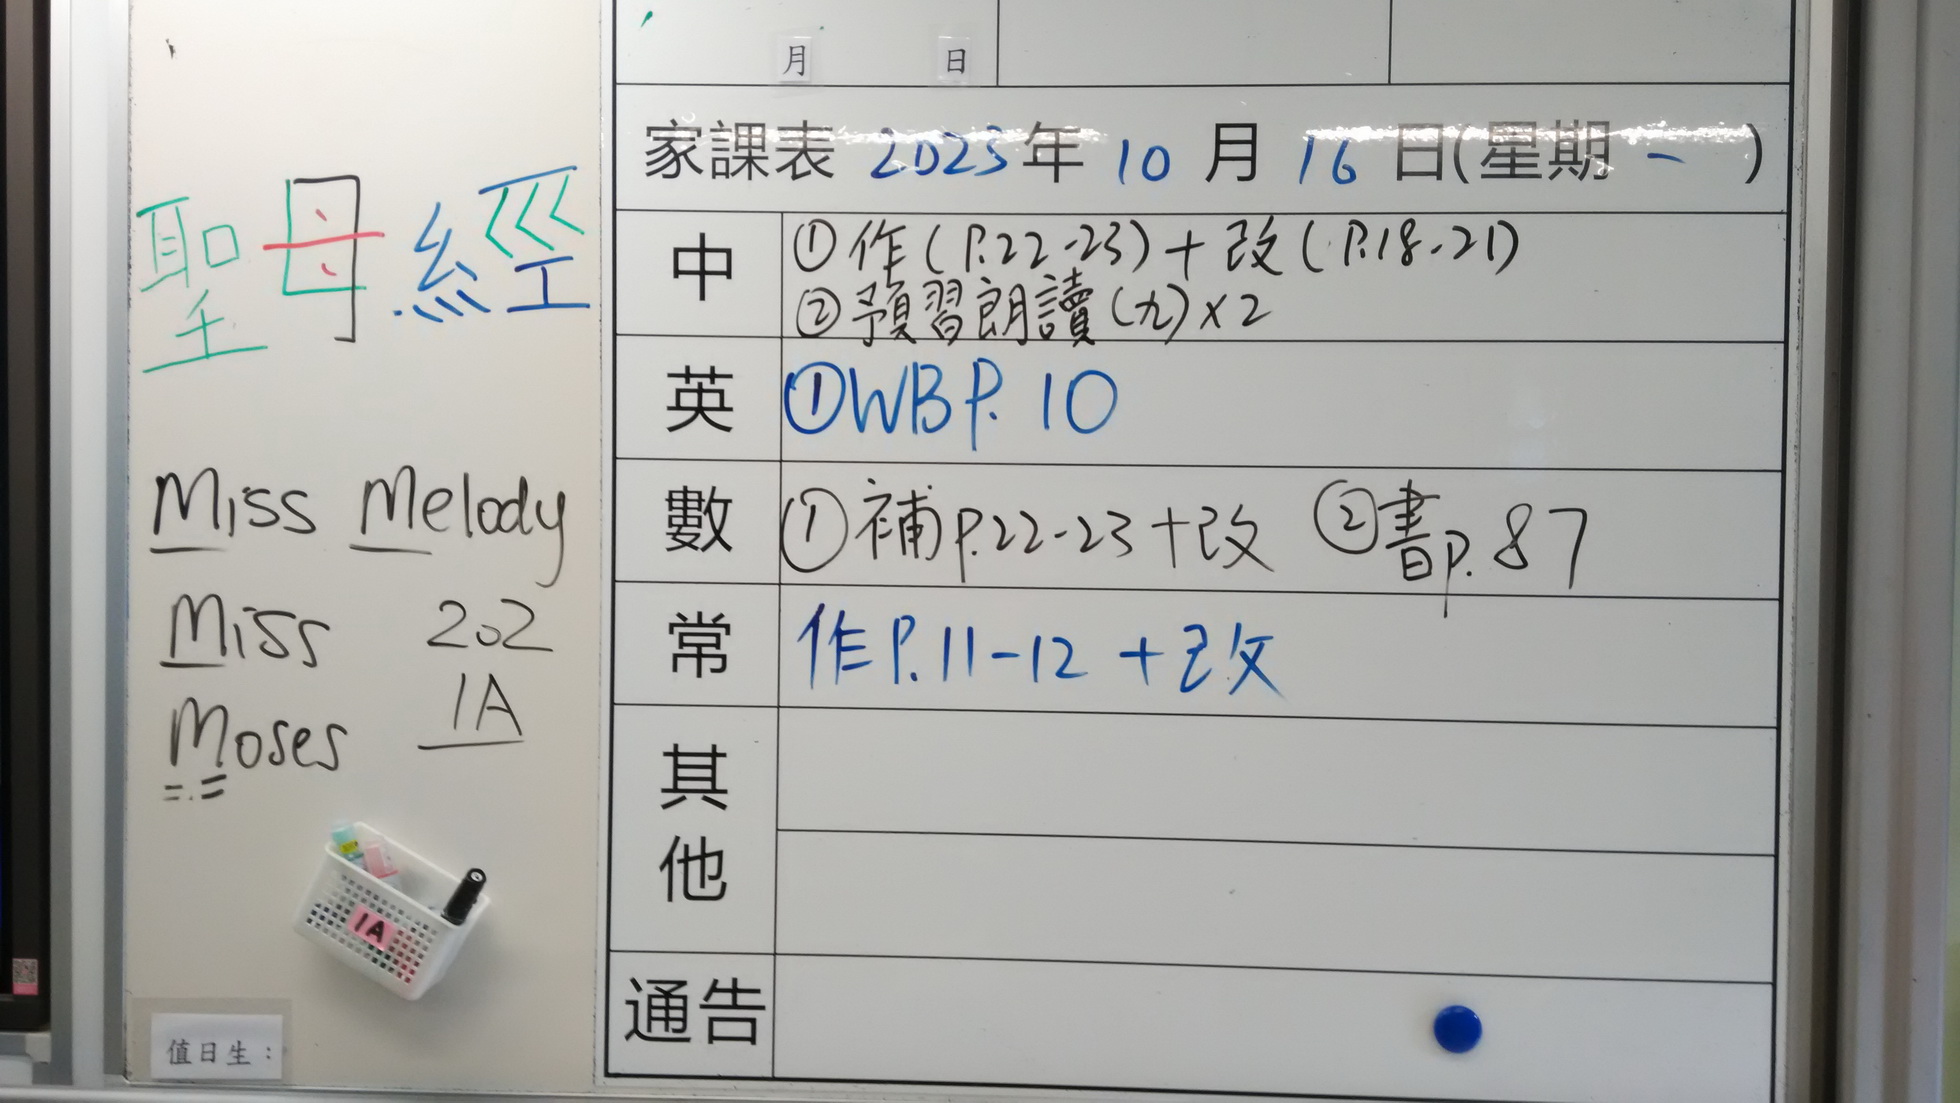 月 日
家課表 2023年 10月 16日(星期一)
中 ①作(P.22-23)+改(P.18-21)
②預習朗讀(九)×2
英 ①WB P.10
數 ①補P.22-23+改 ②書P.87
常 作P.11-12+改
其他
通告
聖母經
Miss Melody
Miss 202
Moses 1A
1A
值日生: